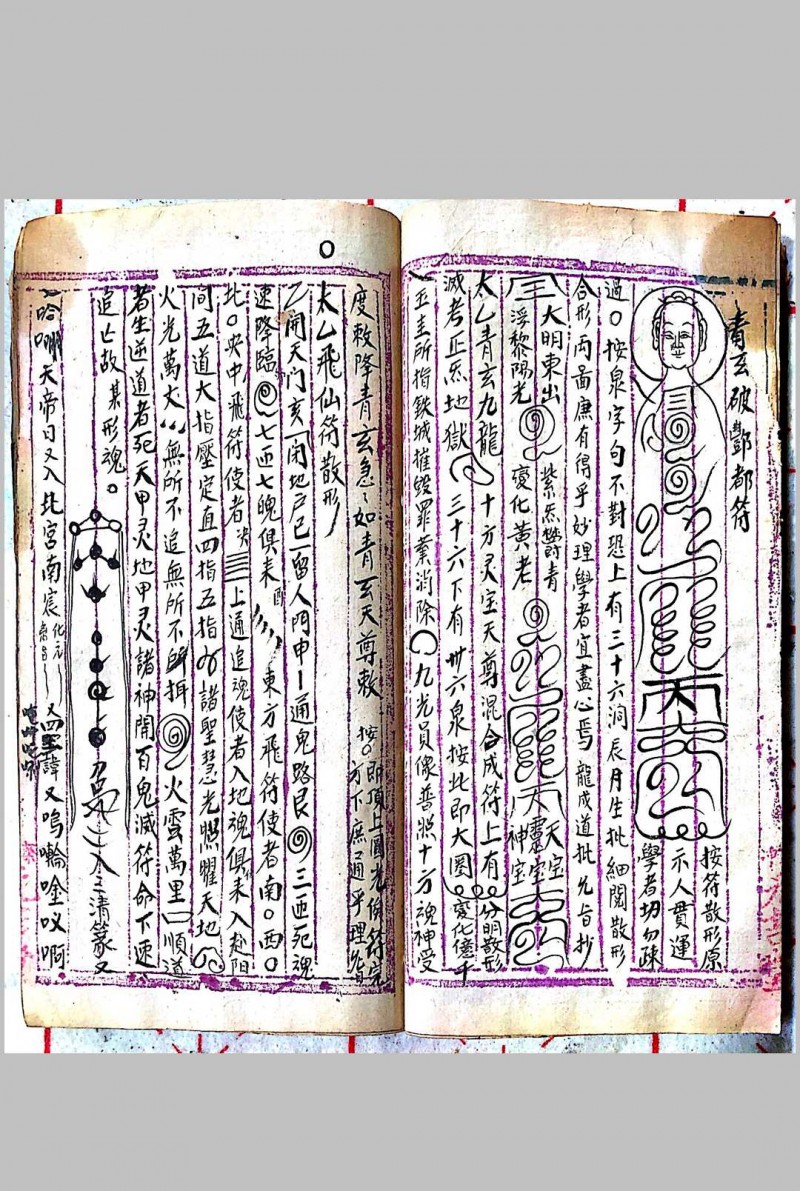 青玄破酆都符
按符散形原
示人貫運
學者切勿疎
過○按泉字句不對恐上有三十六洞辰月生批細閱散形
合形両畐庶有得乎妙理學者宜盡心焉 龍成道批允旨抄
大明東出 紫炁欝青
浮黎陽光 變化黃老
天宝
靈宝
神宝
太乙青玄九龍 十方灵宝天尊混合成符上有 分明散形
滅考正炁地獄 三十六下有卅六泉按此即大圈 変化億千
五圭所指鉄城摧毀罪業消除 九光員像普照十方魂神受
度敕降青玄急〻如青玄天尊敕 按○即頂上圓光俟符完
方下庶通乎理允旨
太乙飛仙符散形
乙開天门亥一閉地戸巳一留人門申一通鬼路艮 三迊死魂
速降臨 七迊七魄俱來 東方飛符使者○南○西○
北○央中飛符使者 上通追魂使者入地魂俱来入赴阳
间五道大指壓定直四指五指 諸聖慧光照耀天地
火光萬丈 無所不追無所不 火雲萬里 順道
者生逆道者死天甲灵地甲灵諸神開百鬼滅符命下速
追亡故 某形魂。
入三清篆又
哈 天帝日又入北宮南宸 又四聖諱又嗚 唫吙啊